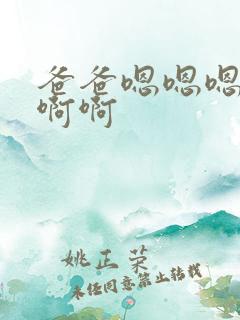 爸爸嗯嗯嗯
啊啊
姚正荣
未经同意禁止转载